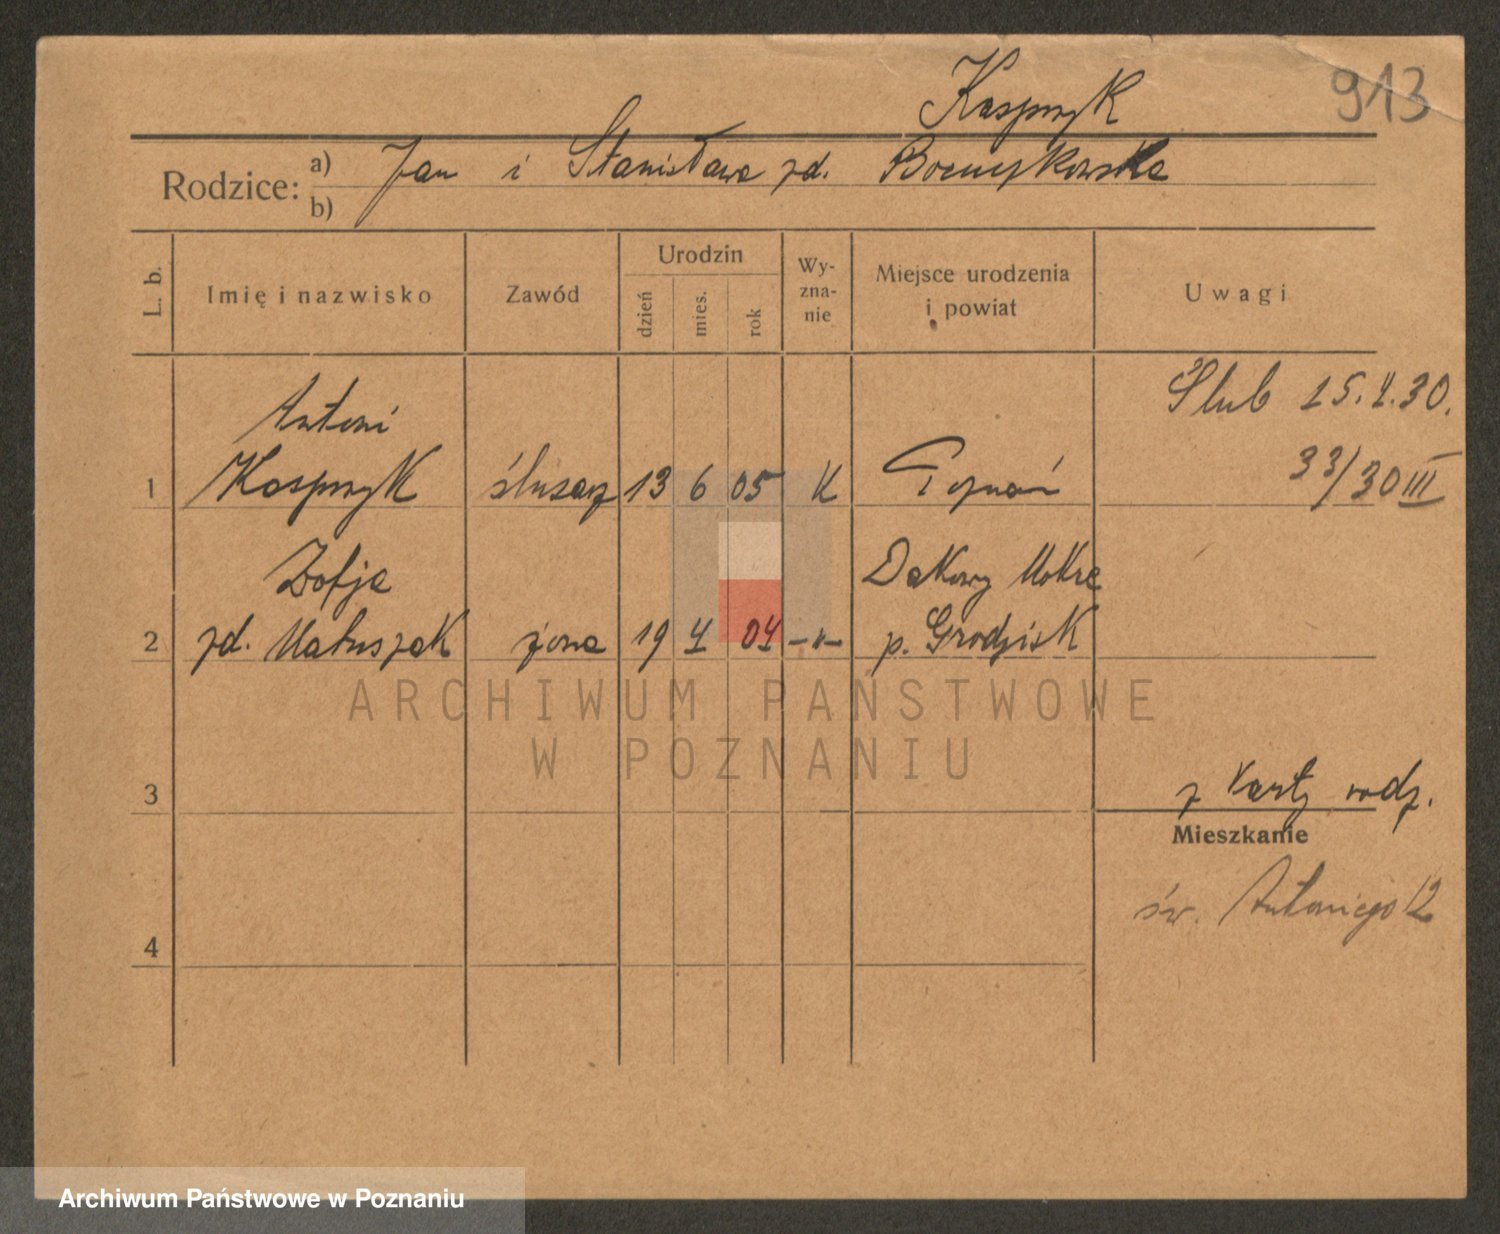 Kasprzyk
913
Rodzice: a) Jan i Stanisława zd.
b)
L. b.
Imię i nazwisko
Zawód
Urodzin
dzień
mies.
rok
Wy-
zna-
nie
Miejsce urodzenia
i powiat
Uwagi
Ślub 15.4.30.
33/30 III
Antoni
1 Kasprzyk ślusarz 13 6 05 K Poznań
Zofja
Dakowy Mokre
2 zd. Matuszak żona 19 4 04 —"— p. Grodzisk
ARCHIWUM PAŃSTWOWE
W POZNANIU
3
z karty rodz.
Mieszkanie
św. Antoniego 12
4
Archiwum Państwowe w Poznaniu